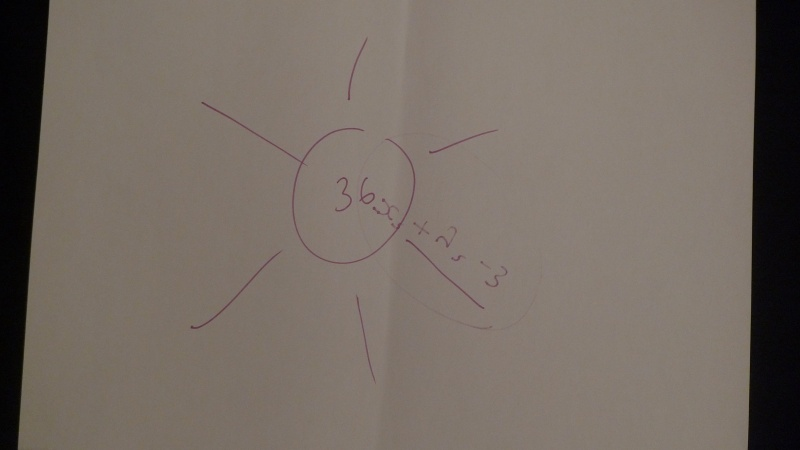 36
+2, -3